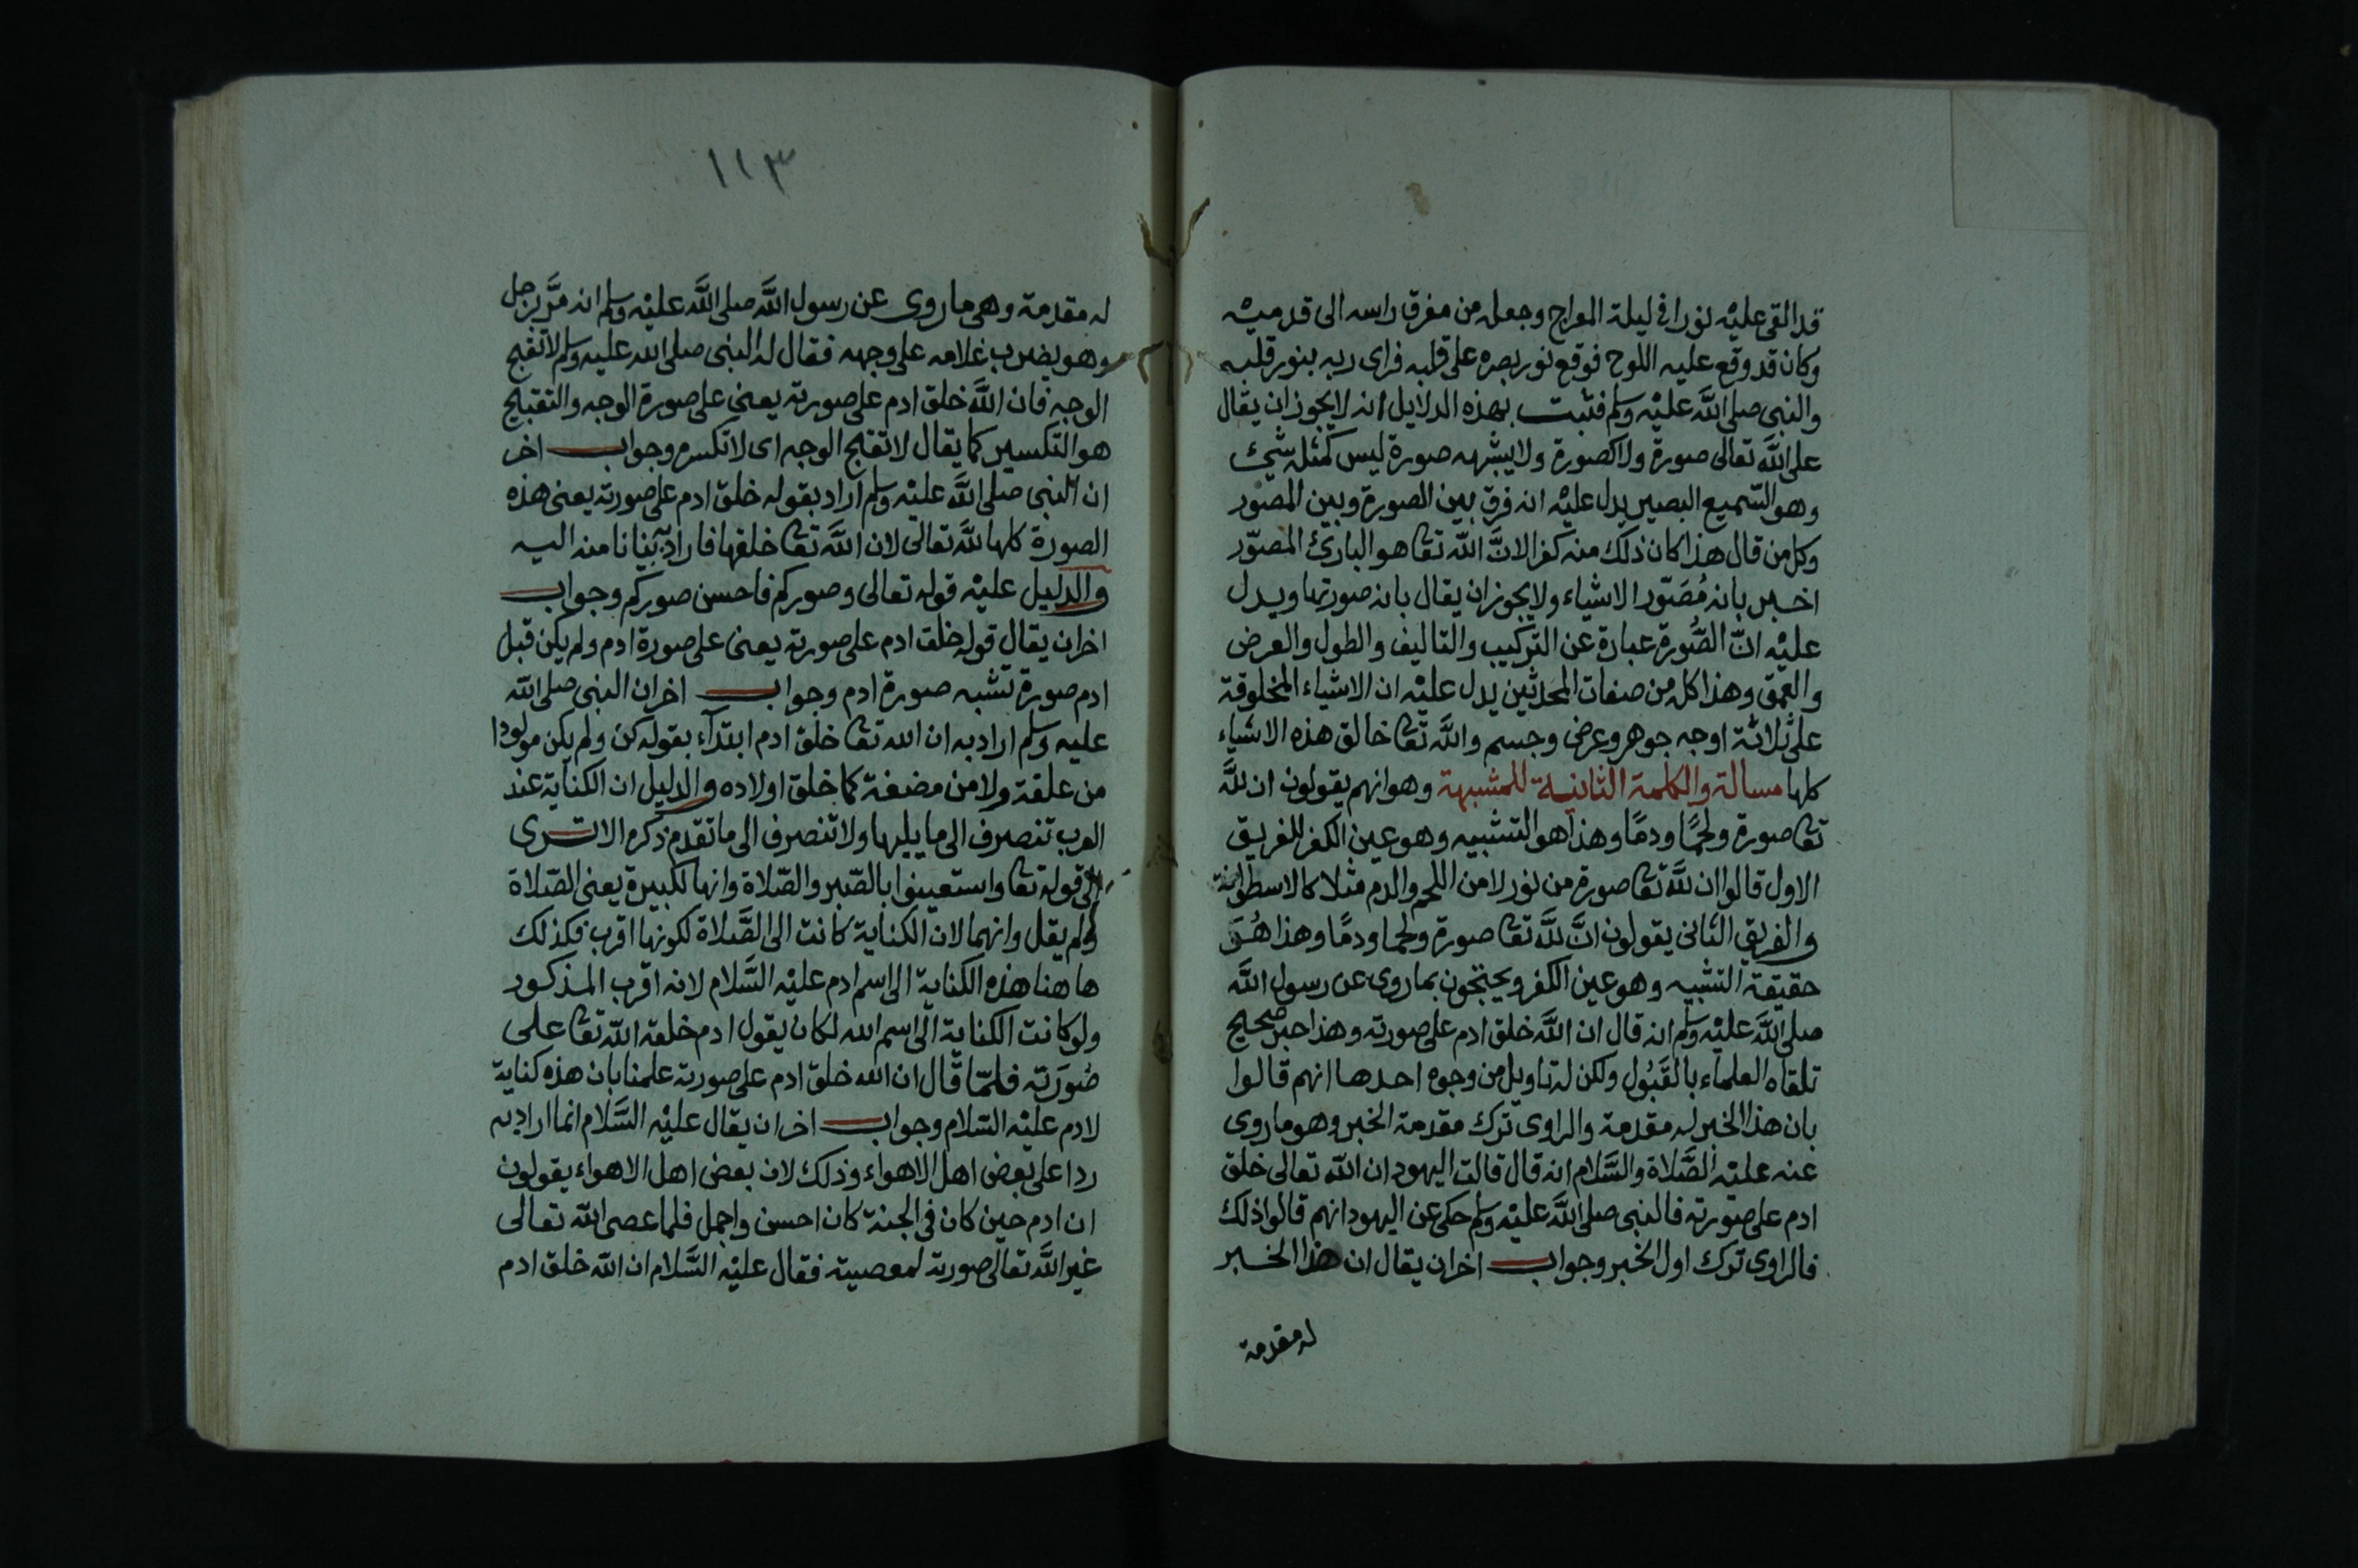 قد القى عليه نورا فى ليلة المعراج وجعله من مفرق راسه الى قدميه
وكان قد وقع عليه اللوح فوقع نور بصره على قلبه فراى ربه بنور قلبه
والنبى صلى الله عليه وسلم فثبت بهذه الدلايل انه لا يجوز ان يقال
على الله تعالى صورة ولا كصورة ولا يشبهه صورة ليس كمثله شئ
وهو السّميع البصير يدل عليه انه فرق بين الصورة وبين المصور
وكل من قال هذا كان ذلك منه كفر الانَّ الله تعا هو البارئ المصوّر
اخبر بانه مُصَوّر الاشياء ولا يجوز ان يقال بانه صورتها ويدل
عليه انّ الصُّورة عبارة عن التركيب والتاليف والطول والعرض
والعمق وهذا كل من صفات المحدثين يدل عليه ان الاشياء المخلوقة
على ثلاثة اوجه جوهر وعرض وجسم والله تعا خالق هذه الاشياء
كلها مسالة والكلمة الثانية للمشبهة وهو انهم يقولون ان لله
تعا صورة ولحمًا ودمًا وهذا هو التشبيه وهو عين الكفر للفريق
الاول قالوا ان لله تعا صورة من نور لا من اللحم والدم مثلا كالاسطوانة
والفريق الثانى يقولون انَّ لله تعا صورة ولحما ودمًا وهذا هُوَ
حقيقة التشبيه وهو عين الكفر ويحتجون بما روى عن رسول الله
صلى الله عليه وسلم انه قال ان الله خلق ادم على صورته وهذا خبر صحيح
تلقاه العلماء بالقَبُول ولكن له تاويل من وجوه احدها انهم قالوا
بان هذا الخبر له مقدمة والراوى ترك مقدمة الخبر وهو ما روى
عنه عليه الصَّلاة والسَّلام انه قال قالت اليهود ان الله تعالى خلق
ادم على صورته فالنبى صلى الله عليه وسلم حكى عن اليهود انهم قالوا ذلك
فالراوى ترك اول الخبر وجواب اخر ان يقال ان هذا الخبر
له مقدمة
١١٣
له مقدمة وهى ما روى عن رسول الله صلى الله عليه وسلم انه مَرَّ برجل
وهو يضرب غلامه على وجهه فقال له النبى صلى الله عليه وسلم لا تقبح
الوجه فان الله خلق ادم على صورته يعنى على صورة الوجه والتقبيح
هو التكسير كما يقال لا تقبح الوجه اى لا تكسره وجواب اخر
ان النبى صلى الله عليه وسلم اراد بقوله خلق ادم على صورته يعنى هذه
الصورة كلها لله تعالى لان الله تعا خلقها فاراد بيانا منه اليه
والدليل عليه قوله تعالى وصوركم فاحسن صوركم وجواب
اخر ان يقال قوله خلق ادم على صورته يعنى على صورة ادم ولم يكن قبل
ادم صورة تشبه صورة ادم وجواب اخر ان النبى صلى الله
عليه وسلم اراد به ان الله تعا خلق ادم ابتدآء بقوله كن ولم يكن مولودا
من علقة ولا من مضغة كما خلق اولاده والدليل ان الكناية عند
العرب تنصرف الى ما يليها ولا تنصرف الى ما تقدم ذكره الا ترى
الى قوله تعا واستعينوا بالصّبر والصّلاة وانها لكبيرة يعنى الصّلاة
ولم يقل وانهما لان الكناية كانت الى الصَّلاة لكونها اقرب فكذلك
ها هنا هذه الكناية الى اسم ادم عليه السَّلام لانه اقرب المذكور
ولو كانت الكناية الى اسم الله لكان يقول ادم خلقه الله تعا على
صُورَته فلمّا قال ان الله خلق ادم على صورته علمنا بان هذه كناية
لادم عليه السّلام وجواب اخر ان يقال عليه السَّلام انما اراد به
ردا على بعض اهل الاهواء وذلك لان بعض اهل الاهواء يقولون
ان ادم حين كان فى الجنة كان احسن واجمل فلما عصى الله تعالى
غير الله تعالى صورته لمعصيته فقال عليه السَّلام ان الله خلق ادم